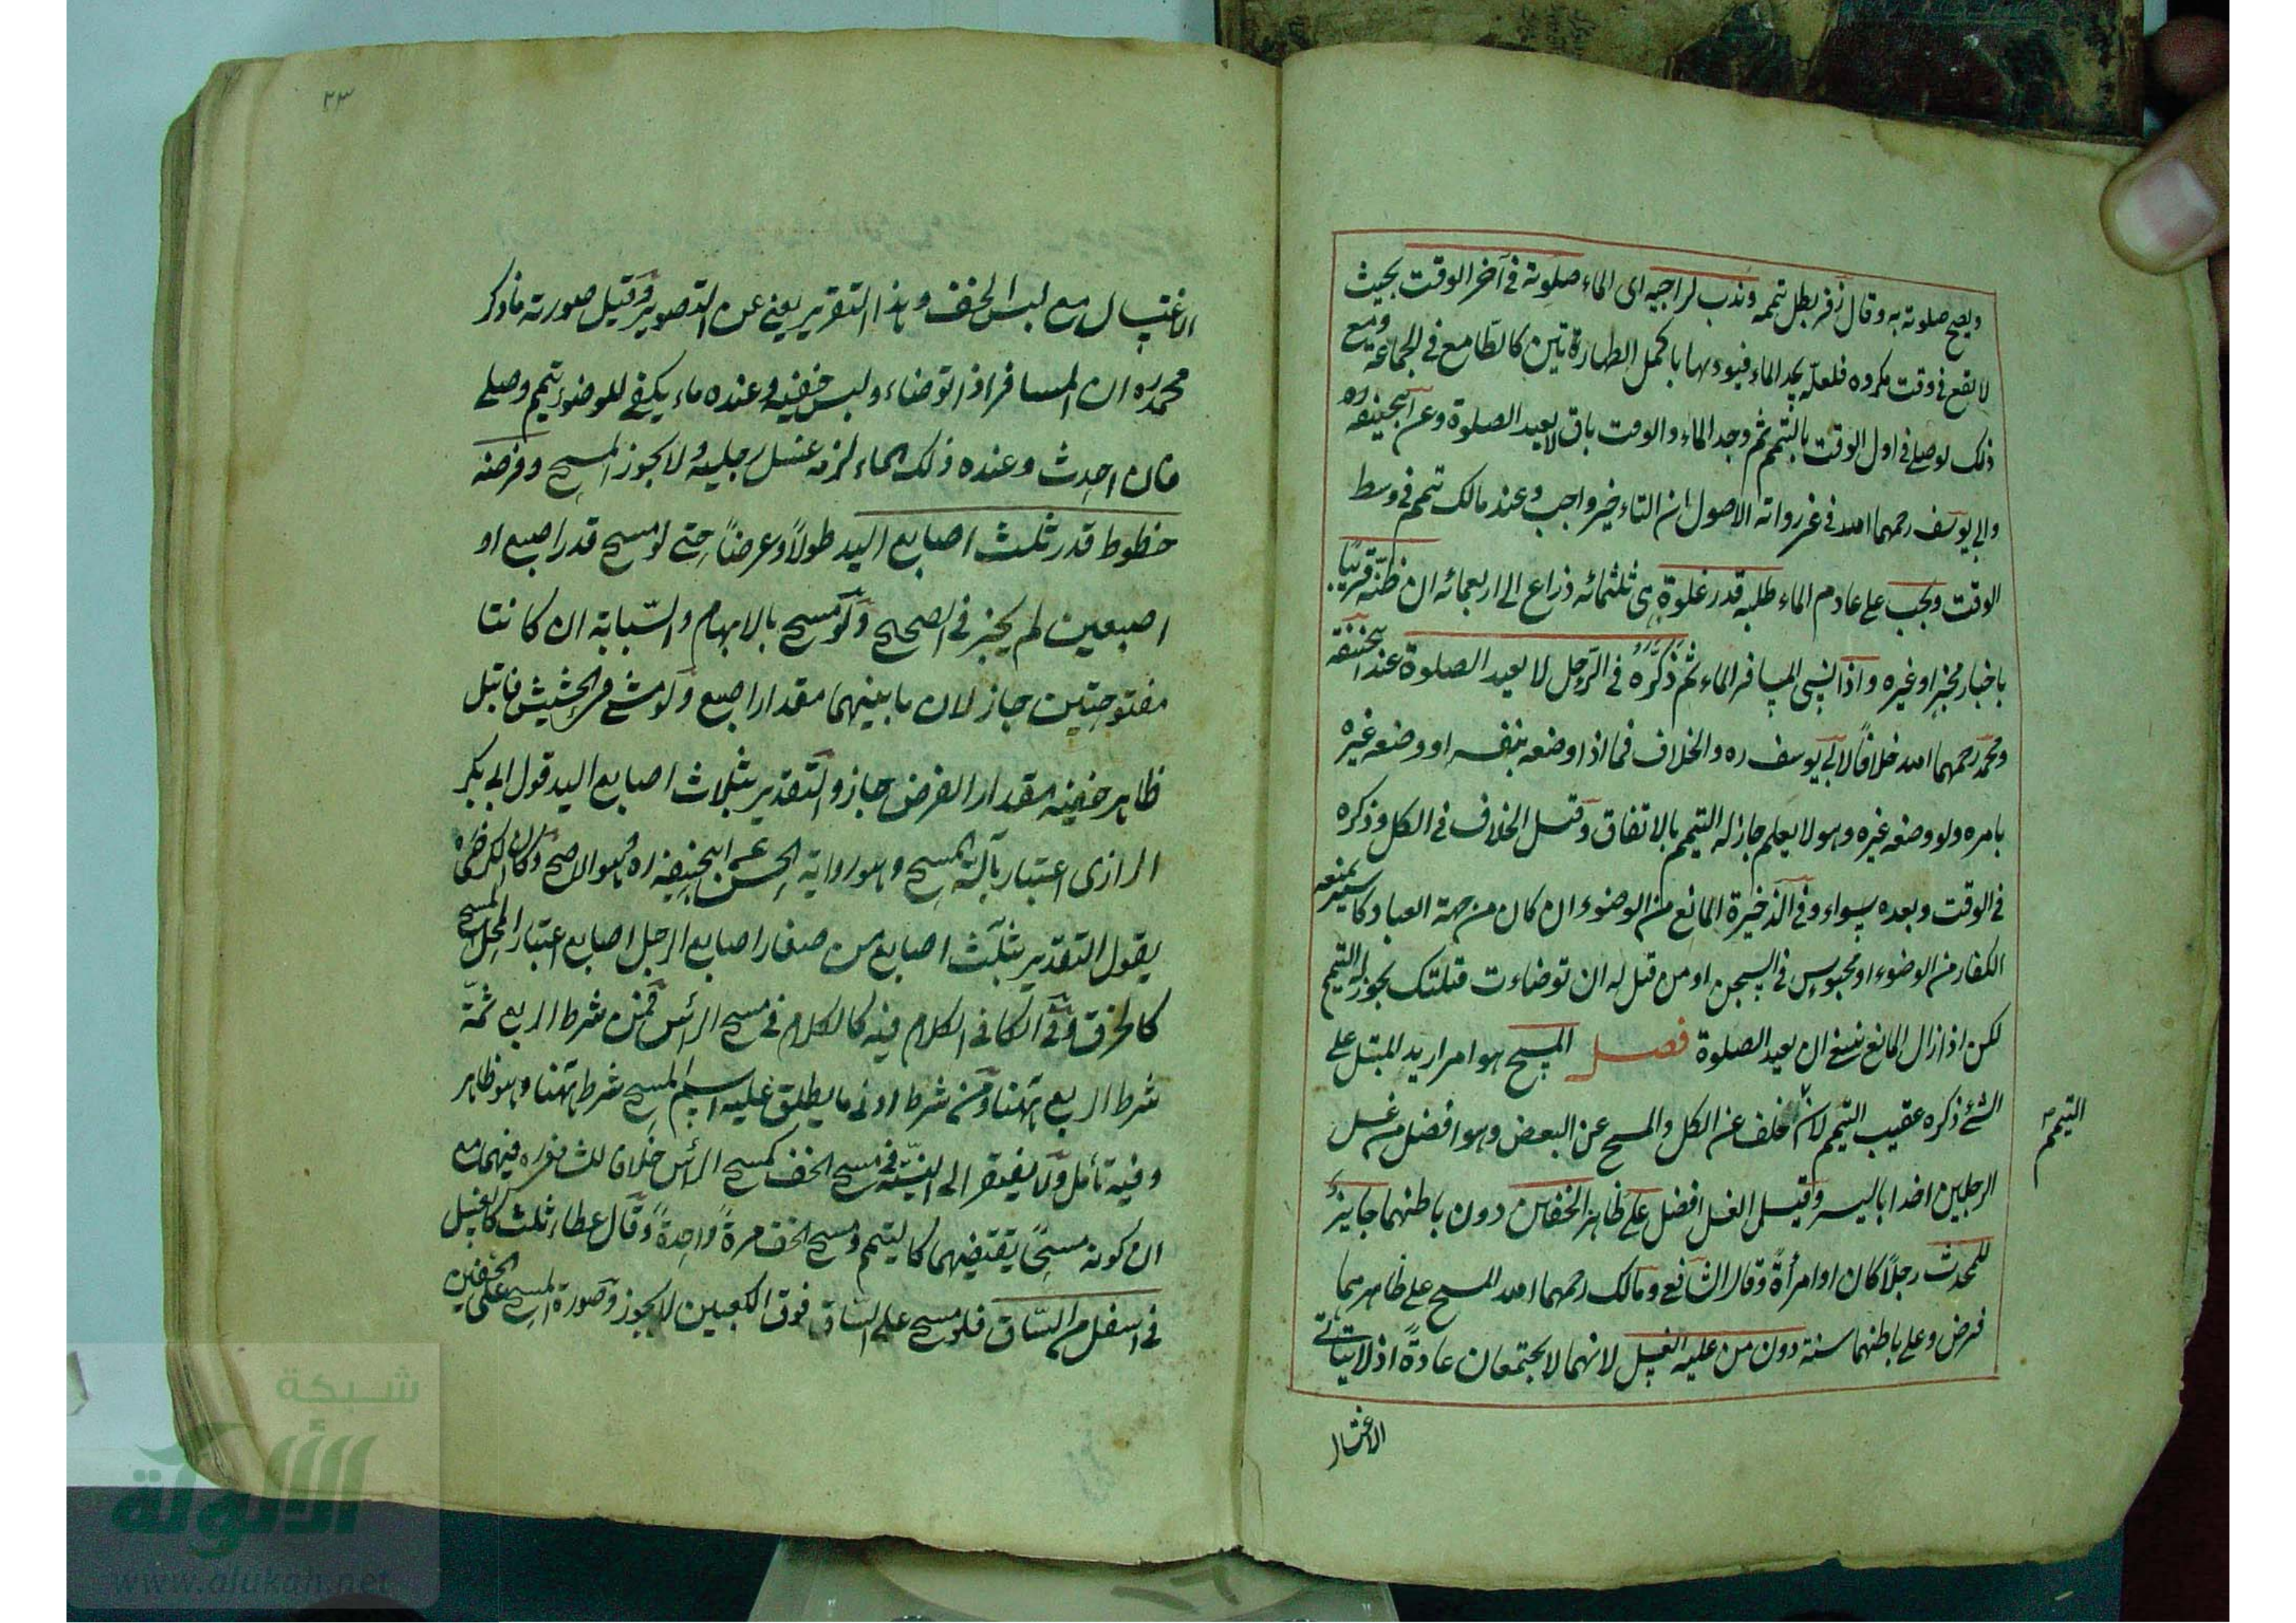 ويصح صلوته به وقال زفر بطل تيممه وندب لراجيه اى الماء صلوته فى آخر الوقت بحيث
لا يقع فى وقت مكروه فلعله يجد الماء فيؤديها باكمل الطهارتين كالطامع فى الجماعة ومع
ذلك لو صلى فى اول الوقت بالتيمم ثم وجد الماء والوقت باق لا يعيد الصلوة وعن ابيحنيفه ره
وابى يوسف رحمهما الله فى غير رواية الاصول ان التاءخير واجب وعند مالك تيمم فى وسط
الوقت ويجب على عادم الماء طلبه قدر غلوة هى ثلثمائه ذراع الى اربعمائه ان ظنه قريبًا
باخبار مخبر او غيره واذا نسى المسافر الماء ثم ذكره فى الرحل لا يعيد الصلوة عند ابيحنيفه
ومحمد رحمهما الله خلافًا لابى يوسف ره والخلاف فيما اذا وضعه بنفسه او وضعه غيره
بامره ولو وضعه غيره وهو لا يعلم جاز له التيمم بالاتفاق وقيل الخلاف فى الكل وذكره
فى الوقت وبعده سواء وفى الذخيرة المانع من الوضوء ان كان من جهة العباد كاسير يمنعه
الكفار من الوضوء او محبوس فى السجن او من قيل له ان توضاءت قتلتك يجوز له التيمم
لكن اذا زال المانع ينبغى ان يعيد الصلوة فصل المسح هو امرار يد المبتل على
الشئ ذكره عقيب التيمم لانه خلف عن الكل والمسح عن البعض وهو افضل من غسل
التيمم
الرجلين اخذا باليسر وقيل الغسل افضل على ظاهر الخفين دون باطنهما جايز
للمحدث رجلًا كان او امرأةً وقال الشافعى ومالك رحمهما الله المسح على ظاهرهما
فرض وعلى باطنهما سنة دون من عليه الغسل لانهما لا يجتمعان عادةً اذ لا يتاتى
الاغتسال
٢٣
الاغتسال مع لبس الخف وهذا التقرير يغنى عن التصوير وقيل صورته ما ذكر
محمد ره ان المسافر اذا توضاء ولبس خفيه وعنده ماء يكفى للوضوء تيمم وصلى
فان احدث وعنده ذلك الماء لزمه غسل رجليه ولا يجوز المسح وفرضه
خطوط قدر ثلث اصابع اليد طولًا وعرضًا حتى لو مسح قدر اصبع او
اصبعين لم يجز فى الصحيح ولو مسح بالابهام والسبابة ان كانتا
مفتوحتين جاز لان ما بينهما مقدار اصبع ولو مشى فى الحشيش فابتل
ظاهر خفيه مقدار الفرض جاز والتقدير بثلاث اصابع اليد قول ابى بكر
الرازى اعتبار بآلة المسح وهو رواية الحسن عن ابيحنيفه ره وهو الاصح وكان الكرخى
يقول التقدير بثلث اصابع من صغار اصابع الرجل اعتبار المحل المسح
كالخرق وفى الكافى الكلام فيه كالكلام فى مسح الرأس فمن شرط الربع ثمة
شرط الربع ههنا ومن شرط ادنى ما يطلق عليه اسم المسح شرط ههنا وهو ظاهر
وفيه تأمل ولا يفتقر الى النية فى مسح الخف كمسح الرأس خلافا للشافعى ره فيهما مع
ان كونه مسحًا يقتضيهما كالتيمم ومسح الخف مرةً واحدةً وقال عطاء ثلث كالغسل
فى اسفل من الساق فلو مسح على الساق فوق الكعبين لا يجوز وصورة المسح على الخفين
شبكة
الألوكة
www.alukah.net